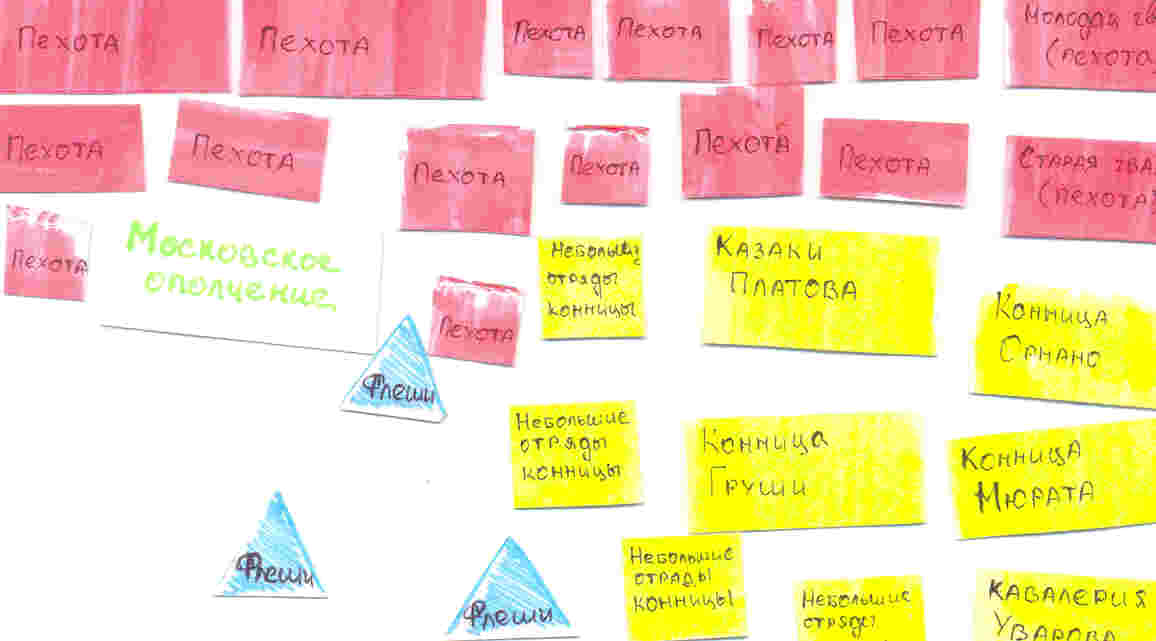 Пехота
Пехота
Пехота
Пехота
Пехота
Пехота
Молодая гв
(пехота
Пехота
Пехота
Пехота
Пехота
Пехота
Пехота
Старая гва
(пехота)
Пехота
Московское
ополчение
Пехота
Небольшие
отряды
конницы
Казаки
Платова
Конница
Орнано
Флеши
Небольшие
отряды
конницы
Конница
Груши
Конница
Мюрата
Флеши
Флеши
Небольшие
отряды
конницы
Небольшие
отряды
Кавалерия
Уварова